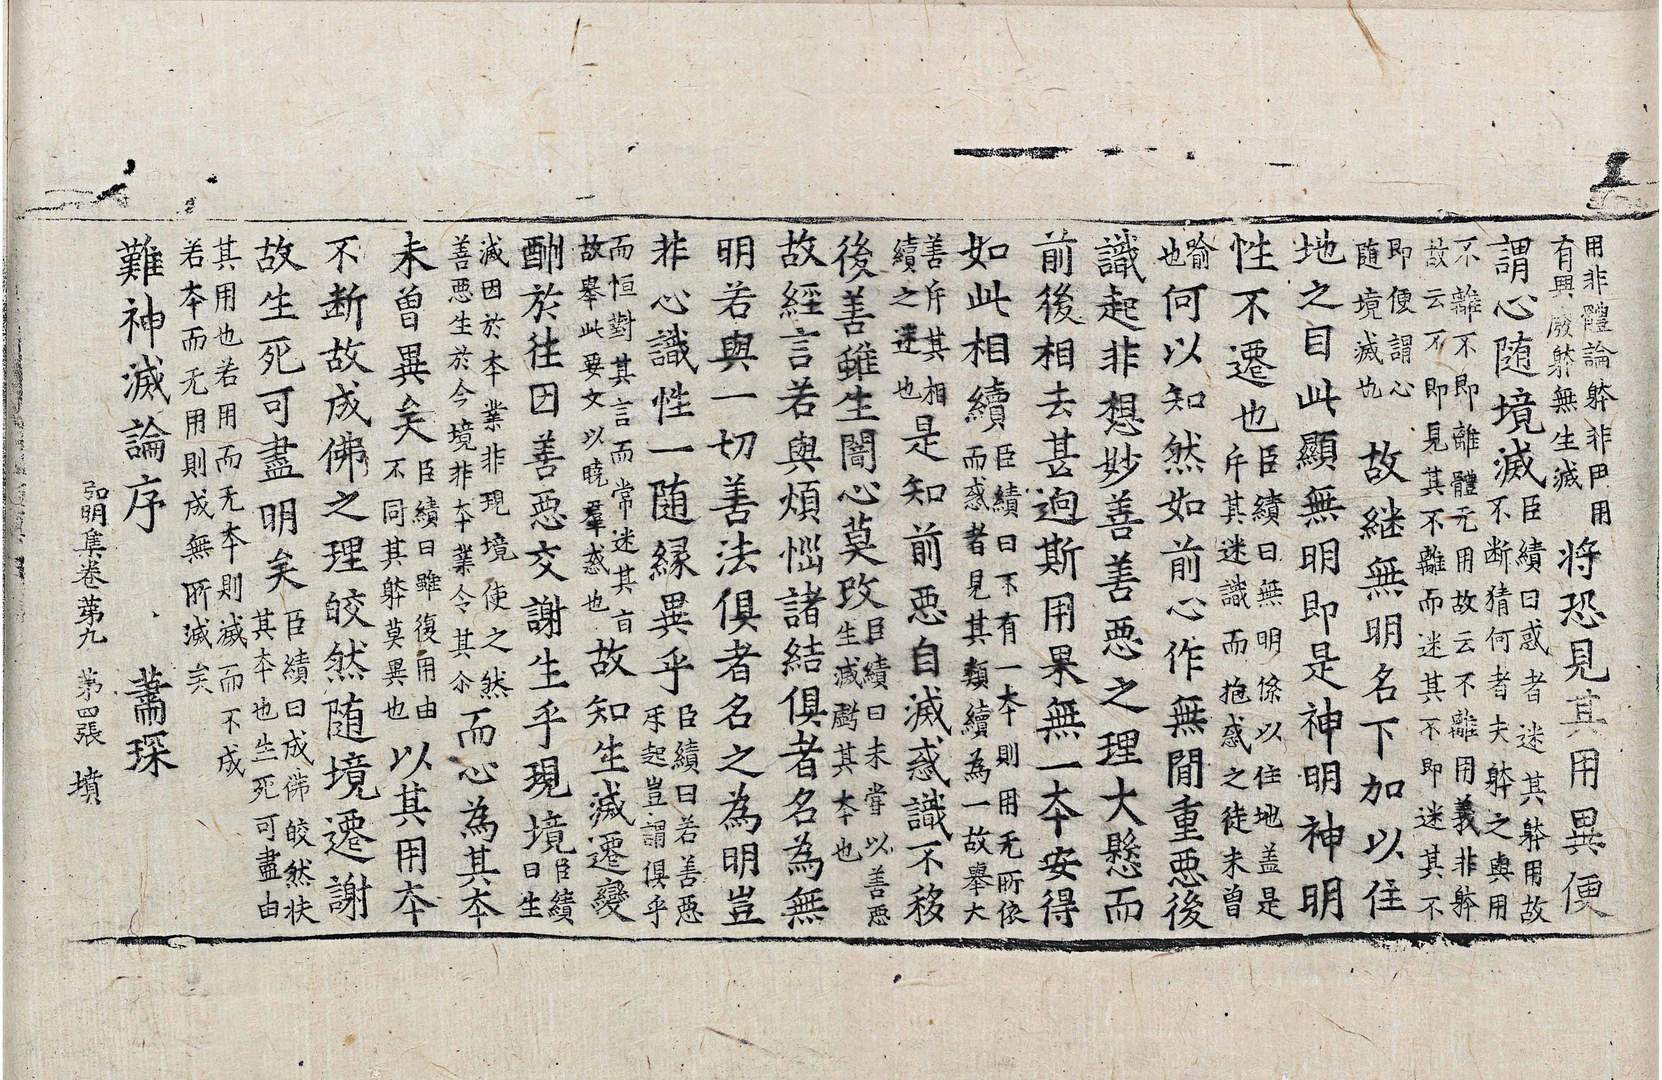 用非體論躰非用用有興廢躰無生滅將恐見其用異便
謂心随境滅臣績曰惑者迷其躰用故不断猜何者夫躰之與用
不離不即離體无用故云不離用義非躰故云不即見其不離而迷其不即迷其不
即便謂心随境滅也故継無明名下加以住
地之目此顯無明即是神明神明
性不遷也臣績曰無明係以住地盖是斥其迷識而抱惑之徒未曾
喻也何以知然如前心作無閒重惡後
識起非想妙善善惡之理大懸而
前後相去甚逈斯用果無一夲安得
如此相續臣績曰不有一夲則用无所依而惑者見其類續為一故舉大
善斥其相續之迷也是知前惡自滅惑識不移
後善雖生闇心莫攺臣績曰未甞以善惡生滅虧其夲也
故經言若與煩惱諸結俱者名為無
明若與一切善法俱者名之為明豈
非心識性一随緣異乎臣績曰若善惡㸦起豈謂俱乎
而恒對其言而常迷其旨故舉此要文以曉羣惑也故知生滅遷變
酬於往因善惡交謝生乎現境臣績曰生
滅因於夲業非現境使之然善惡生於今境非夲業令其尒而心為其夲
未曾異矣臣績曰雖復用由不同其躰莫異也以其用夲
不断故成佛之理皎然随境遷謝
故生死可盡明矣臣績曰成佛皎然状其夲也生死可盡由
其用也若用而无夲則滅而不成若夲而无用則成無所滅矣
難神滅論序 蕭琛
弘明集卷第九 第四張 墳